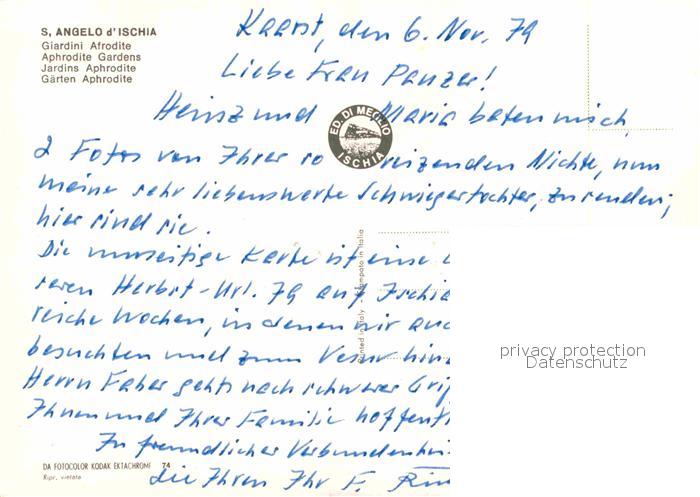 S, ANGELO d'ISCHIA
Giardini Afrodite
Aphrodite Gardens
Jardins Aphrodite
Gärten Aphrodite
Kaarst, den 6. Nov. 79
Liebe Frau Panzer!
Heinz und Maria baten mich,
ED. DI MEGLIO
ISCHIA
2 Fotos von Ihrer so reizenden Nichte, nun
meine sehr liebenswerte Schwiegertochter, zu senden;
hier sind sie.
Die umseitige Karte ist eine
Herbst-Url. 79 auf Ischia
reiche Wochen, in denen wir auc
besuchten und zum Vesuv hin
Herrn Faber gehts nach schwerer Grip
Ihnen und Ihrer Familie hoffent
In freundlicher Verbundenhei
die Ihren Ihr F.
Printed in Italy - Stampato in Italia
privacy protection
Datenschutz
DA FOTOCOLOR KODAK EKTACHROME 74
Ripr. vietata